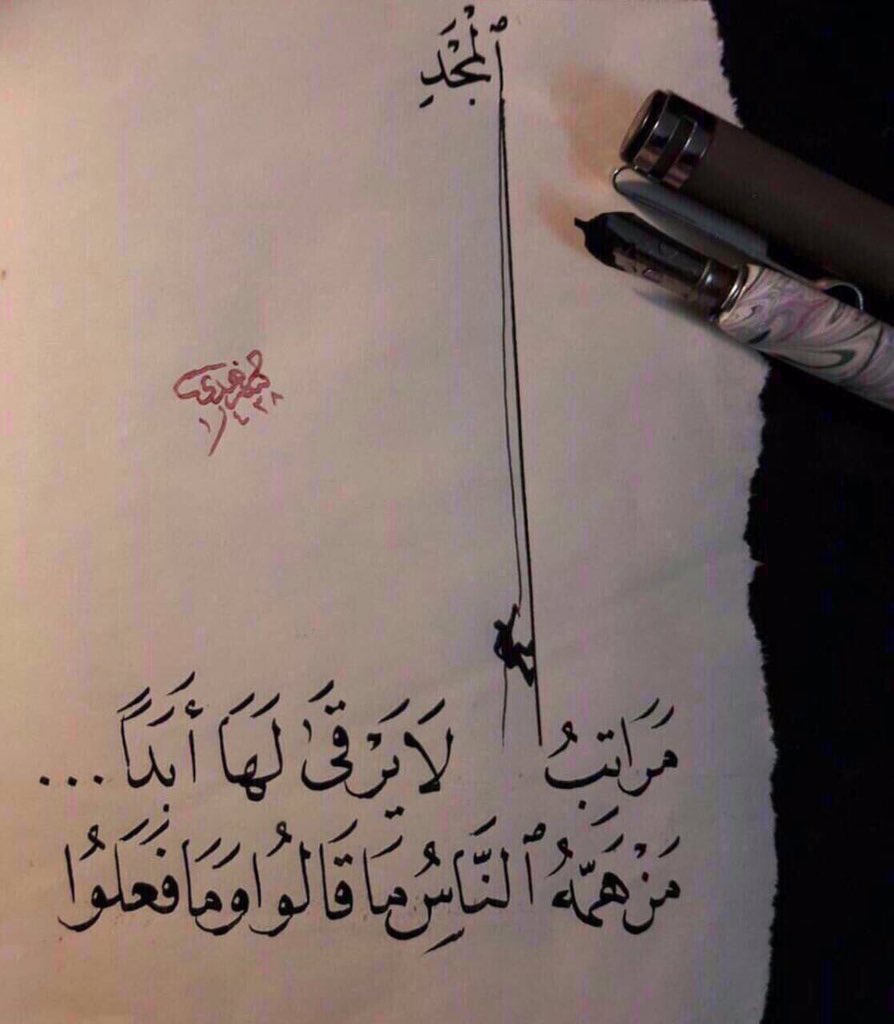 ٱلْمَجْدِ
مَرَاتِبُ لَا يَرْقَىٰ لَهَا أَبَدًا...
مَنْ هَمُّهُ ٱلنَّاسُ مَا قَالُوا وَمَا فَعَلُوا
١٤٣٨